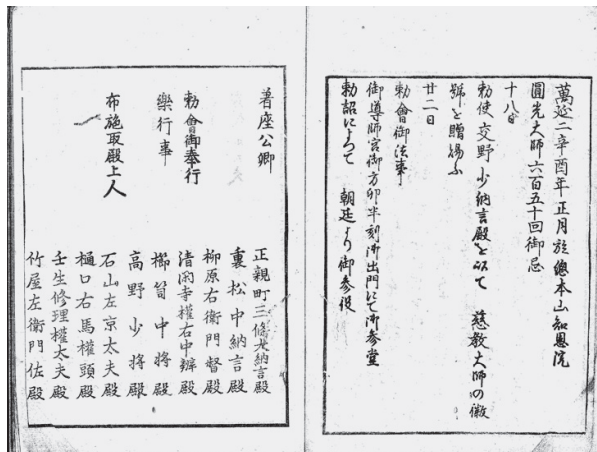 萬延二辛酉年正月於總本山知恩院
圓光大師六百五十回御忌
十八日
勅使交野少納言殿を以て 慈教大師の徽
號を贈賜ふ
廿二日
勅會御法事
御導師宮御方卯半刻御出門にて御参堂
勅詔によつて 朝廷より御参役
著座公卿 正親町三條大納言殿
裏松中納言殿
柳原右衛門督殿
勅會御奉行 清閑寺權右中辨殿
樂行事 櫛笥中將殿
高野少將殿
布施取殿上人 石山左京太夫殿
樋口右馬權頭殿
壬生修理權太夫殿
竹屋左衛門佐殿